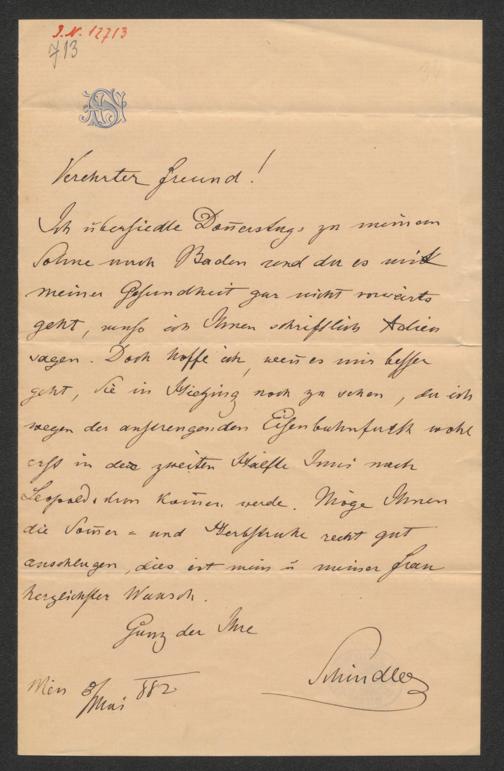 J.N. 12713
713
Verehrter Freund!
Ich übersiedle Don̄erstags zu meinem
Sohne nach Baden und da es mit
meiner Gesundheit gar nicht vorwärts
geht, muß ich Ihnen schriftlich Adieu
sagen. Doch hoffe ich, wen̄ es mir besser
geht, Sie in Hietzing noch zu sehen, da ich
wegen der anstrengenden Eisenbahnfarth wohl
erst in der zweiten Hälfte Juni nach
Leopoldskron kom̄en werde. Möge Ihnen
die Som̄er- und Herbstruhe recht gut
anschlagen, dies ist mein u meiner Frau
herzlichster Wunsch.
Ganz der Ihre
Schindler
Wien 3/Mai 882